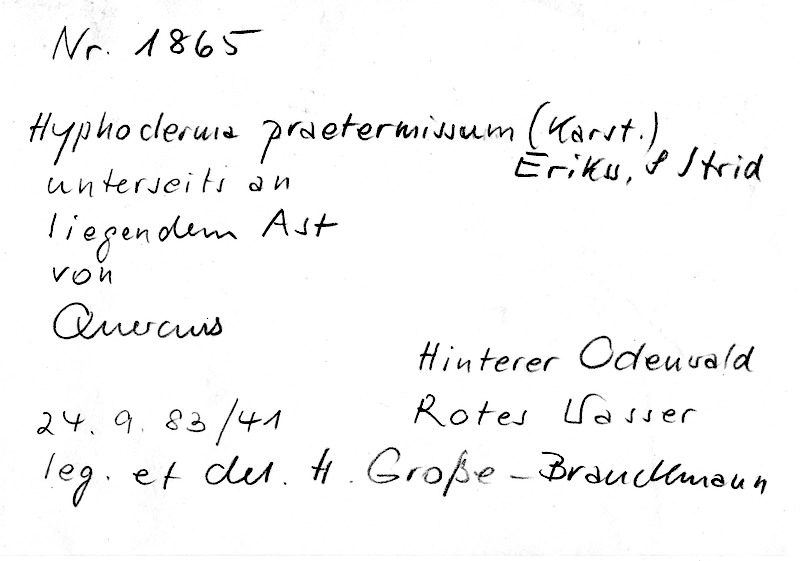 Nr. 1865
Hyphoderma praetermissum (Karst.)
Erikss. & Strid
unterseits an
liegendem Ast
von
Quercus
Hinterer Odenwald
Rotes Wasser
24. 9. 83/41
leg. et det. H. Große-Brauckmann